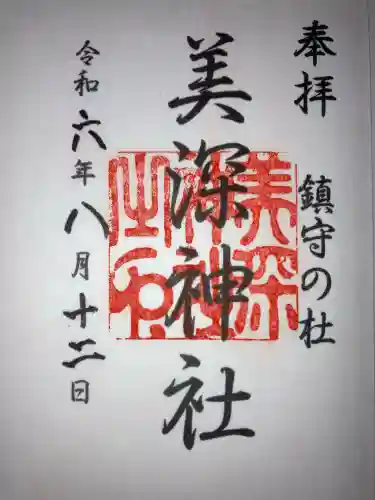 奉拝 鎮守の杜
美深神社
令和六年八月十二日
美深
神社
之印